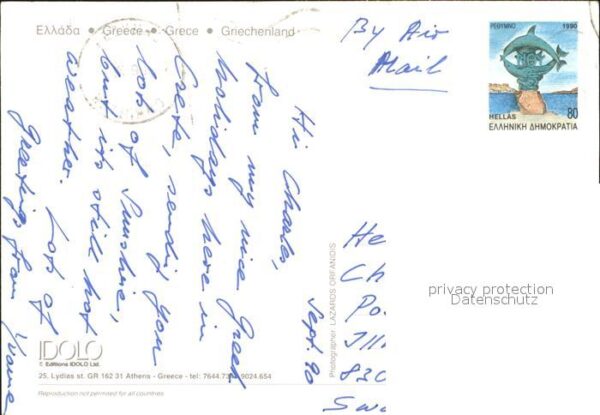 Ελλάδα • Greece • Grece • Griechenland
By Air
Mail
ΡΕΘΥΜΝΟ 1990
HELLAS 80
ΕΛΛΗΝΙΚΗ ΔΗΜΟΚΡΑΤΙΑ
Sept. 90
Hi Charles,
from my nice Greek
holidays here in
Crete, sending you
lot of Sunshine,
but its still hot
weather. Lots of
Greetings from Yvonne
He
Ch
Po
Illn
830
Swa
privacy protection
Datenschutz
Photographer LAZAROS ORFANIDIS
IDOLO
© Editions IDOLO Ltd.
25, Lydias st. GR 162 31 Athens - Greece - tel: 7644.73 9024.654
Reproduction not permited for all countries